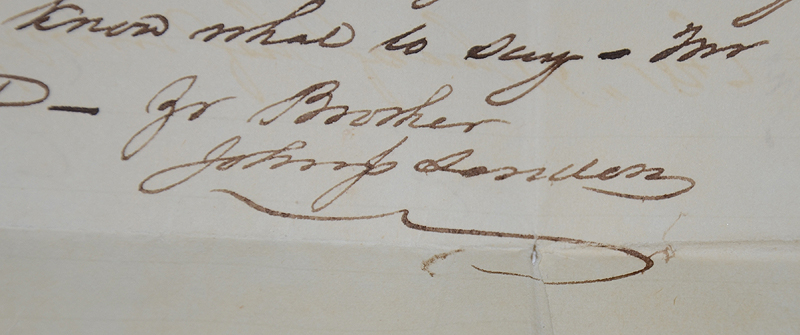 know what to say - Mr
D - Yr Brother
John P